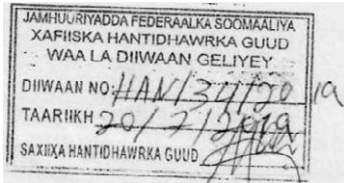 JAMHUURIYADDA FEDERAALKA SOOMAALIYA
XAFIISKA HANTIDHAWRKA GUUD
WAA LA DIIWAAN GELIYEY
DIIWAAN NO:
TAARIIKH 20/2/2019
SAXIIXA HANTIDHAWRKA GUUD